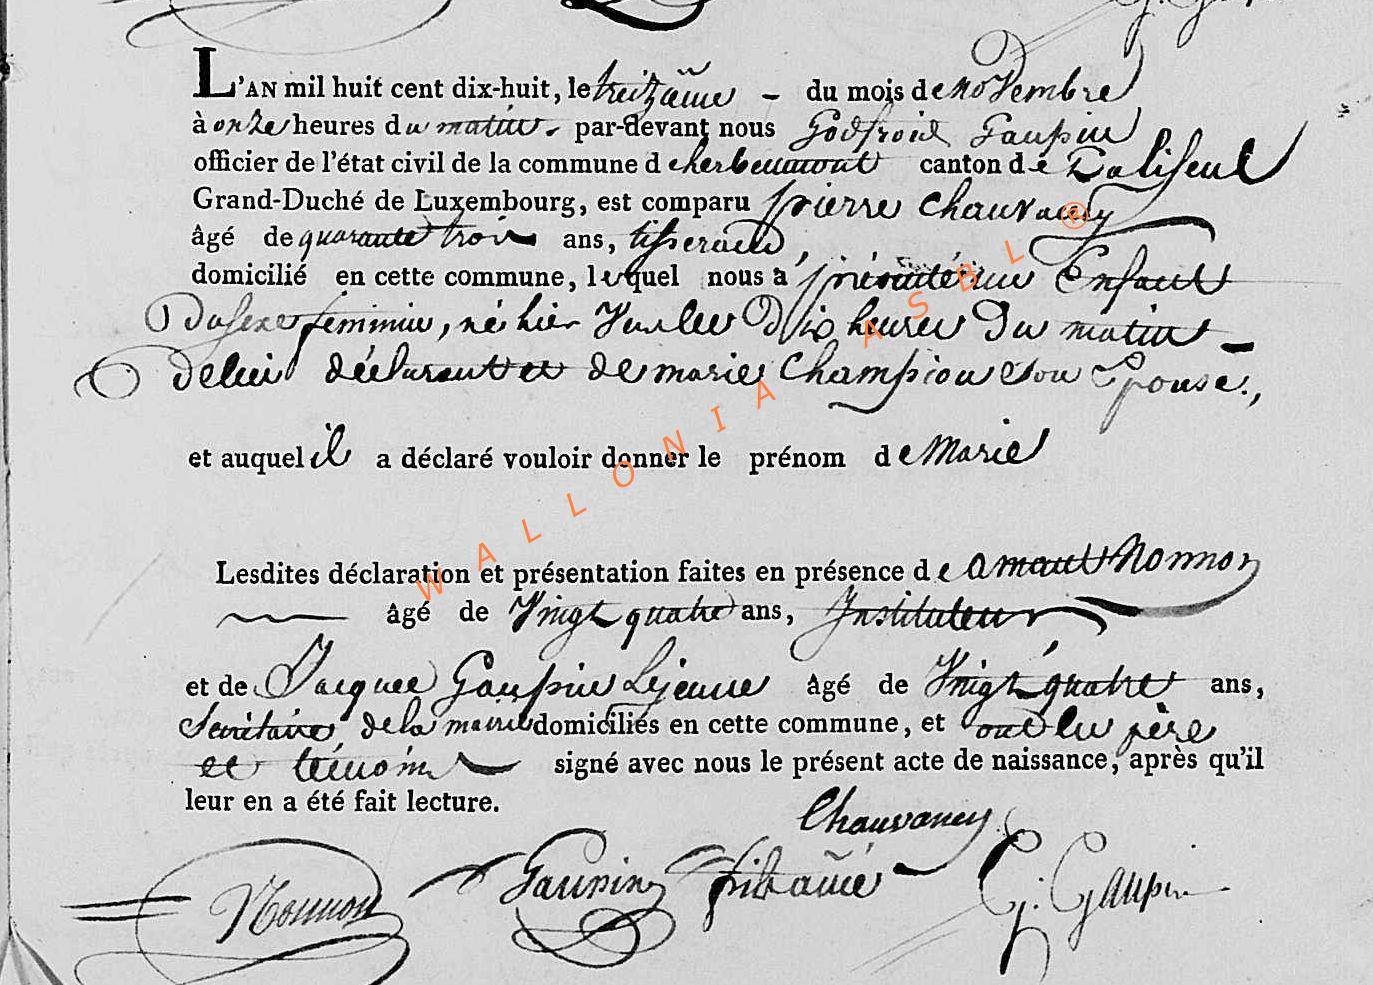 L'AN mil huit cent dix-huit, le treizième - du mois de novembre
à onze heures du matin. par-devant nous Godfroid Gaupin
officier de l'état civil de la commune d'herbeumont canton de Paliseul
Grand-Duché de Luxembourg, est comparu pierre Chauvancy
âgé de quarante trois ans, tisserand,
domicilié en cette commune, lequel nous a présenté un Enfant
Du sexe féminin, né hier Vers les Dix heures Du matin -
De lui déclarant et de marie Champion son Epouse,
et auquel il a déclaré vouloir donner le prénom de Marie
Lesdites déclaration et présentation faites en présence de amant Nonnon
âgé de Vingt quatre ans, Instituteur
et de Jacques Gaupin Lejeune âgé de Vingt quatre ans,
Secrétaire de la mairie domiciliés en cette commune, et ont les père
et témoins signé avec nous le présent acte de naissance, après qu'il
leur en a été fait lecture.
Chauvancy
Nonnon Gaupin G. Gaupin
WALLONIA ASBL ®